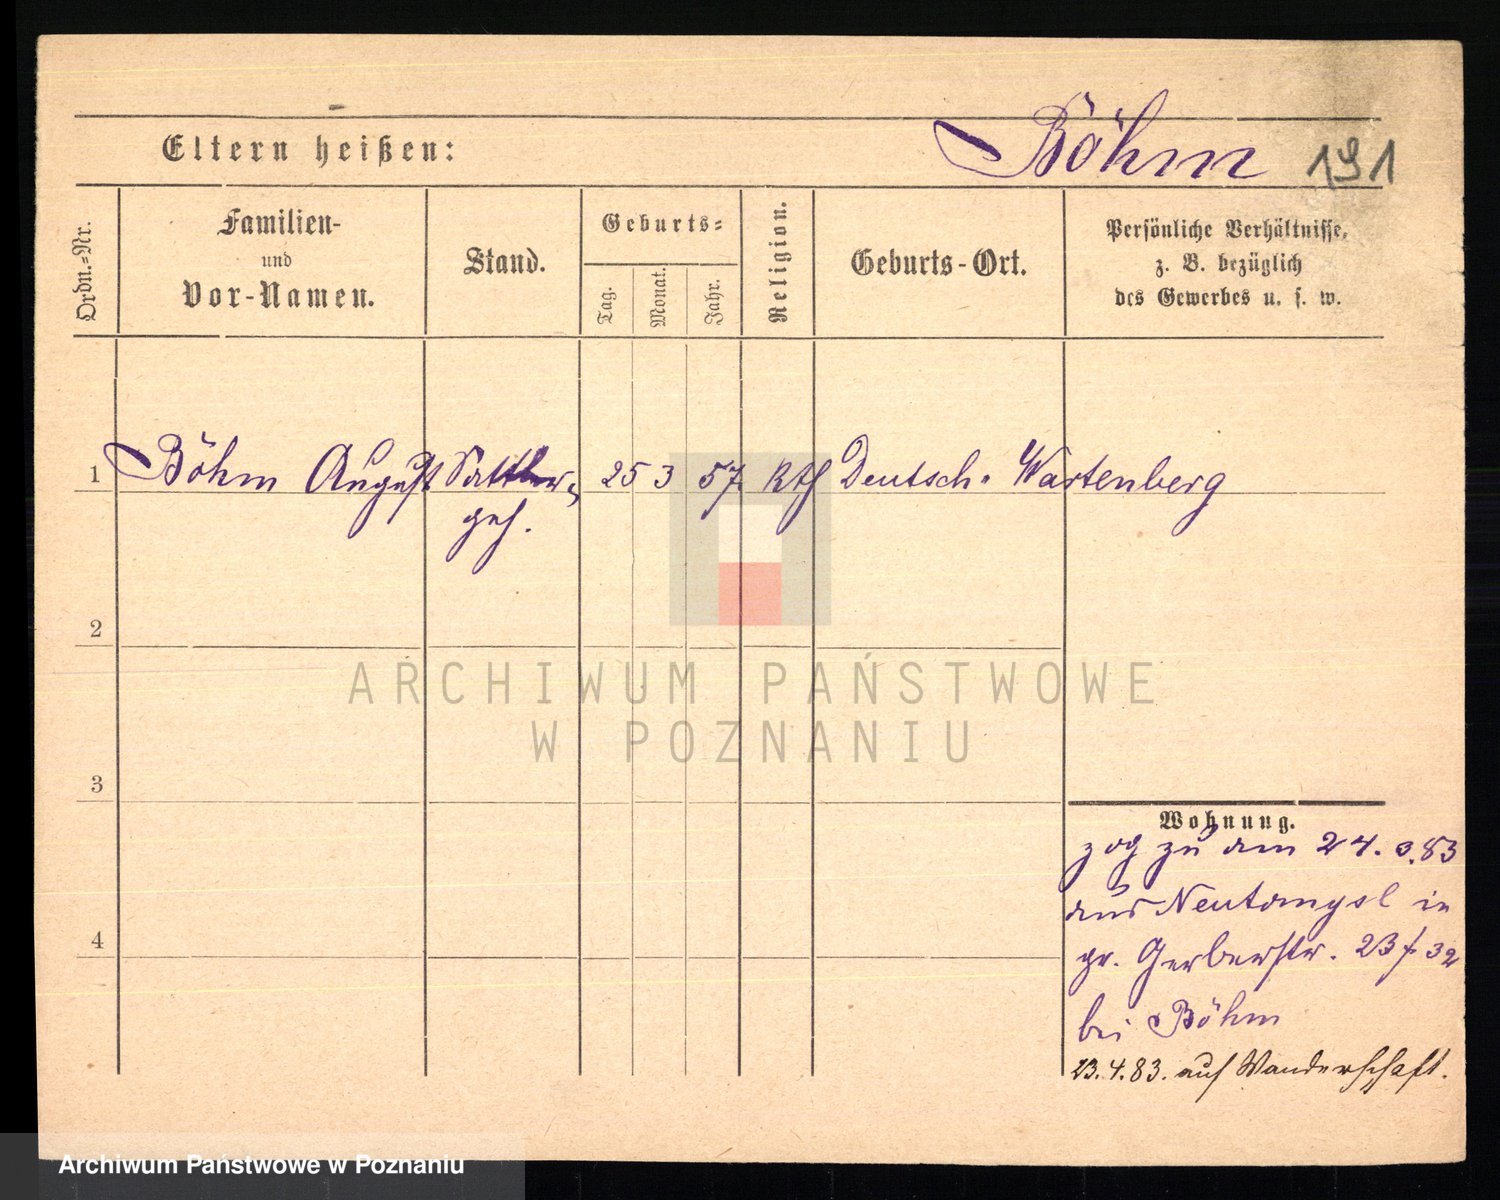 Eltern heißen:
Böhm 191
Ordn.-Nr.
Familien-
und
Vor-Namen.
Stand.
Geburts-
Tag.
Monat.
Jahr.
Religion.
Geburts-Ort.
Persönliche Verhältnisse,
z. B. bezüglich
des Gewerbes u. s. w.
1 Böhm August Sattler- 25 3 57 kth Deutsch-Wartenberg
geh.
2
3
4
Wohnung.
zog zu am 24. 3. 83
aus in
gr. Gerberstr. 23 / 32
bei Böhm
23. 4. 83. auf Wanderschaft.
ARCHIWUM PAŃSTWOWE
W POZNANIU
Archiwum Państwowe w Poznaniu